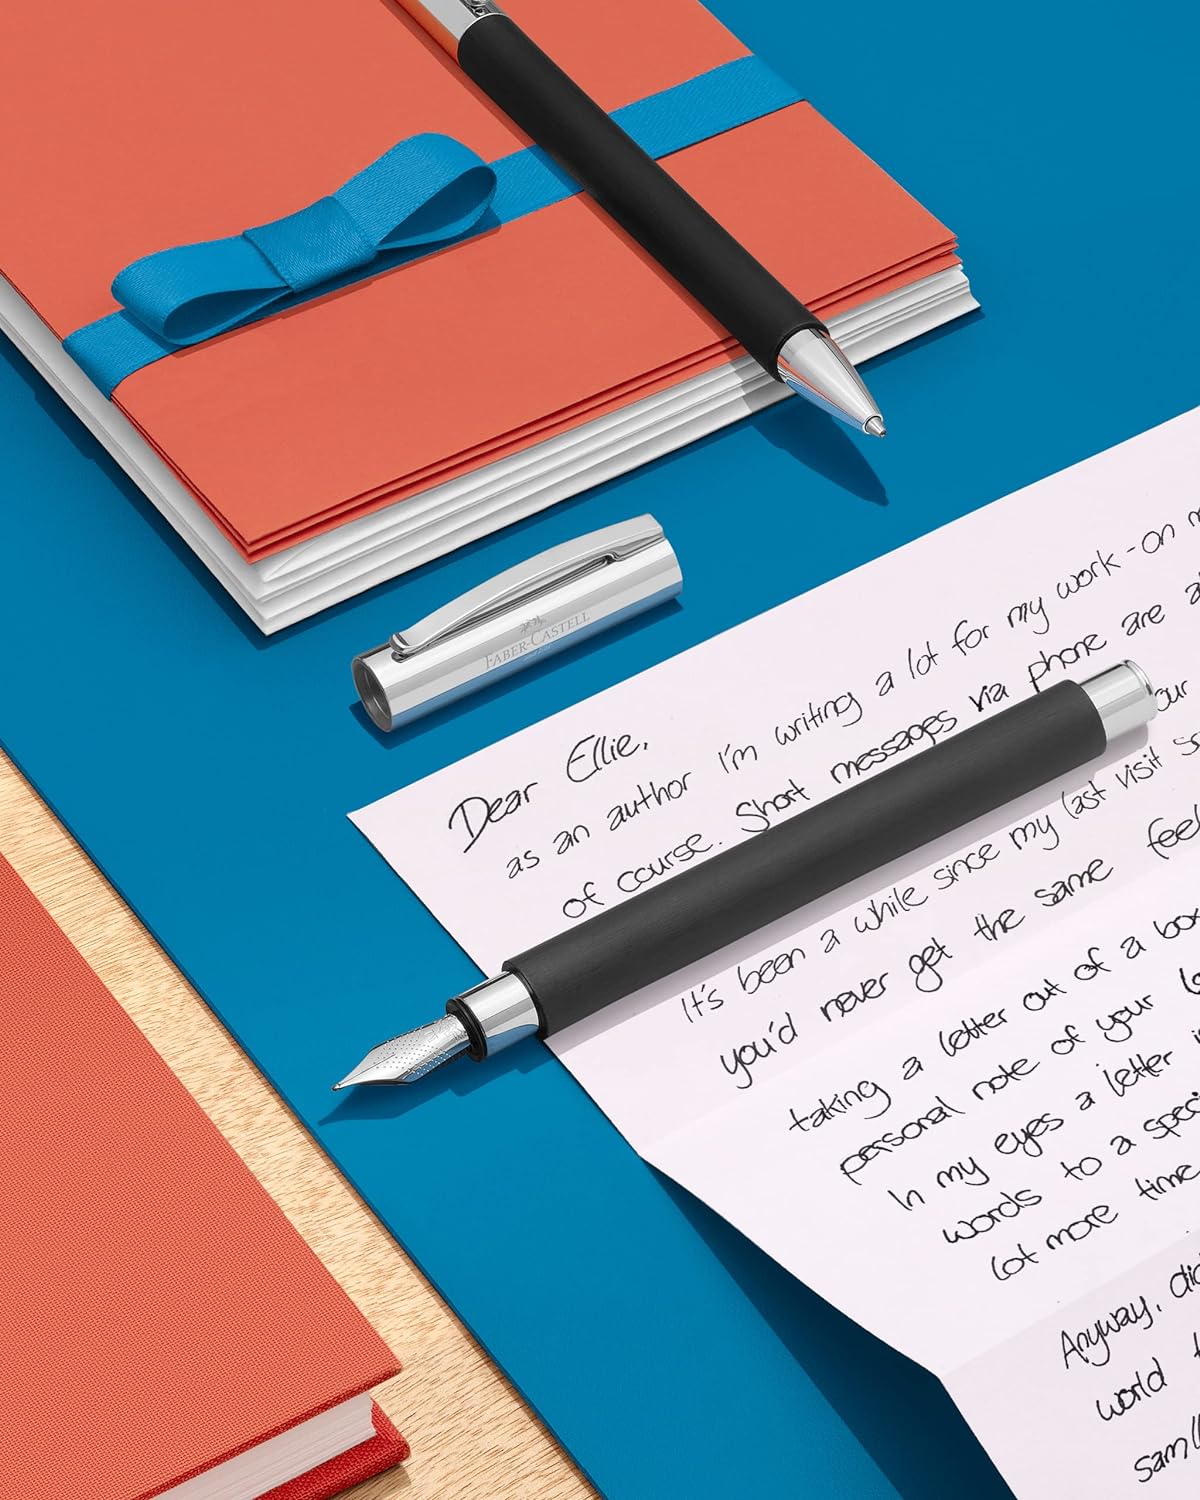 FABER-CASTELL
Dear Ellie,
as an author I'm writing a lot for my work - on
of course. Short messages via phone are
our
It's been a while since my last visit
you'd never get the same
taking a letter out of a box
personal note of your
In my eyes a letter
words to a
lot more time
Anyway,
world